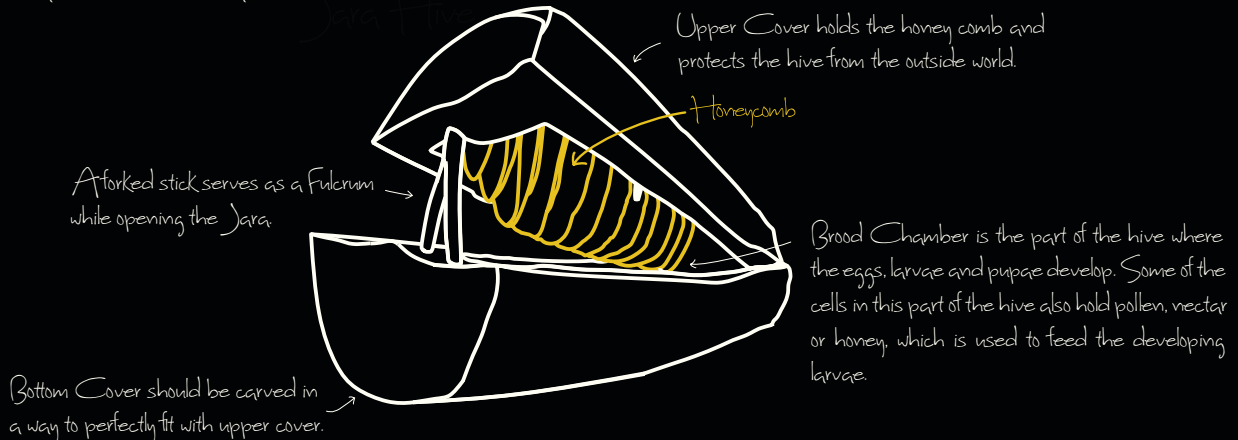 Jara Hive
Upper Cover holds the honey comb and
protects the hive from the outside world.
Honeycomb
A forked stick serves as a Fulcrum
while opening the Jara.
Brood Chamber is the part of the hive where
the eggs, larvae and pupae develop. Some of the
cells in this part of the hive also hold pollen, nectar
or honey, which is used to feed the developing
larvae.
Bottom Cover should be carved in
a way to perfectly fit with upper cover.